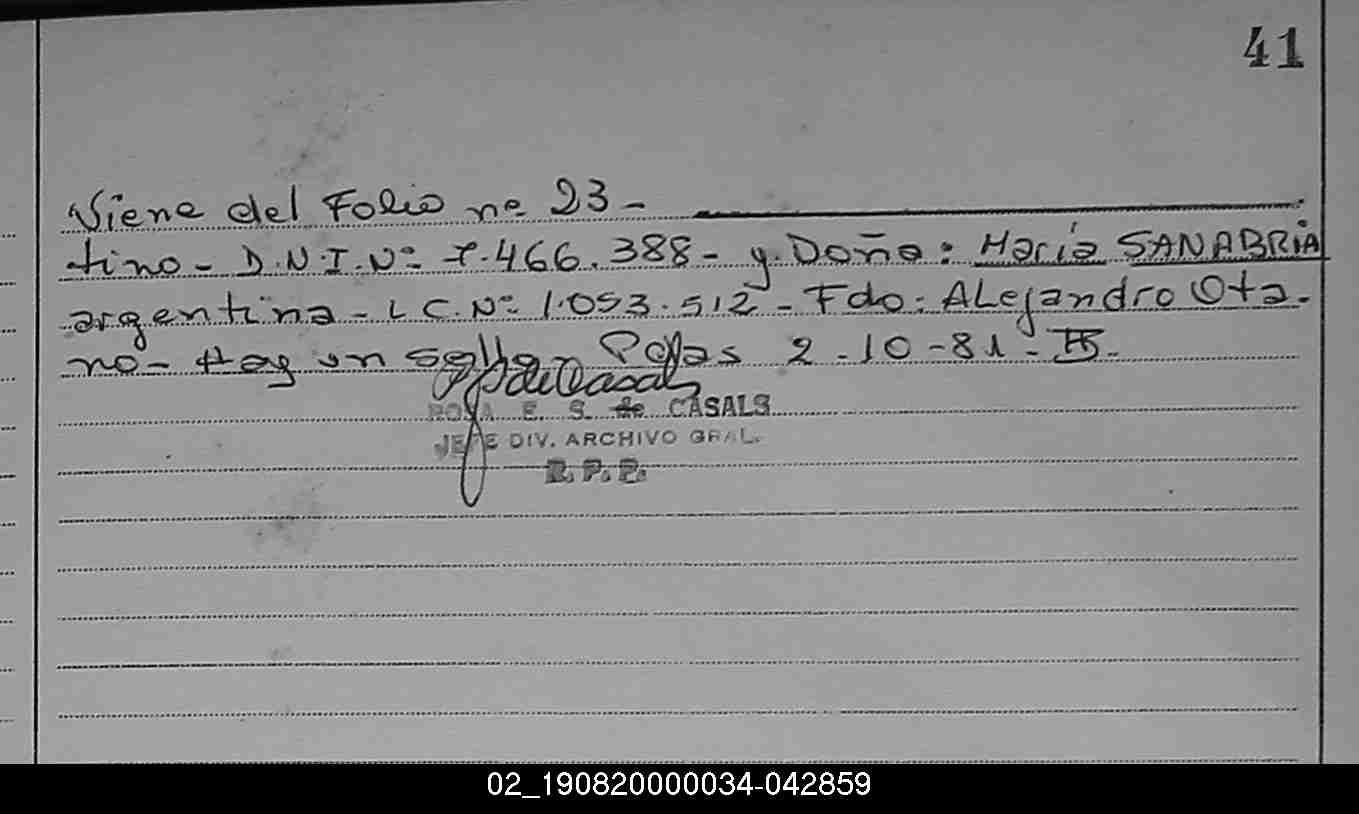 41
Viene del Folio nº 23 -
tino - D.N.I.Nº 7.466.388 - y Doña: María SANABRIA
argentina - L C. Nº 1.053.512 - Fdo: ALejandro Ota-
no - Hay un sello Pdas 2 - 10 - 81 -
ROSA E. S. de CASALS
JEFE DIV. ARCHIVO GRAL.
R. P. P.
02_190820000034-042859